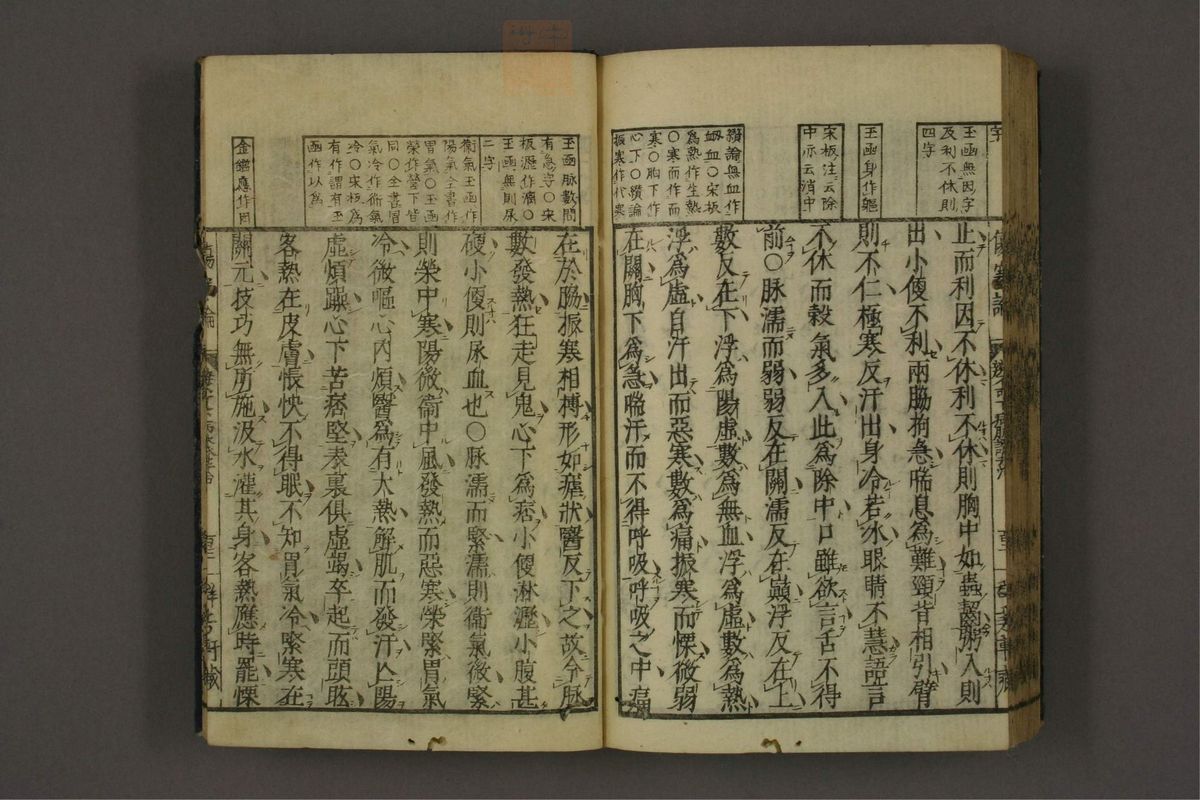 字
玉函無因字
及利不休則
四字
玉函身作軀
宋板注云除
中亦云消中
讚論無血作
衂血〇宋板
為熱作生熱
〇寒而作而
寒〇胸下作
心下〇讚論
振寒作代寒
止而利因不休利不休則胸中如蟲齧粥入則
出小便不利兩脇拘急喘息為難頸背相引臂
則不仁極寒反汗出身冷若冰眼睛不慧語言
不休而穀氣多入此為除中口雖欲言舌不得
前〇脉濡而弱弱反在關濡反在巔浮反在上
數反在下浮為陽虛數為無血浮為虛數為熱
浮為虛自汗出而惡寒數為痛振寒而慄微弱
在關胸下為急喘汗而不得呼吸呼吸之中痛
玉函脉數間
有急字〇宋
板瀝作滴〇
玉函無則尿
二字
衞氣玉函作
陽氣全書作
胃氣〇玉函
榮作營下皆
同〇全書胃
氣冷作衞氣
冷〇宋板為
有作謂有玉
函作以為
金鑑應作因
在於脇振寒相搏形如瘧狀醫反下之故令脉
數發熱狂走見鬼心下為痞小便淋瀝小腹甚
硬小便則尿血也〇脉濡而緊濡則衞氣微緊
則榮中寒陽微衞中風發熱而惡寒榮緊胃氣
冷微嘔心內煩醫為有大熱解肌而發汗亡陽
虛煩躁心下苦痞堅表裏俱虛竭卒起而頭眩
客熱在皮膚悵怏不得眠不知胃氣冷緊寒在
關元技巧無所施汲水灌其身客熱應時罷慄